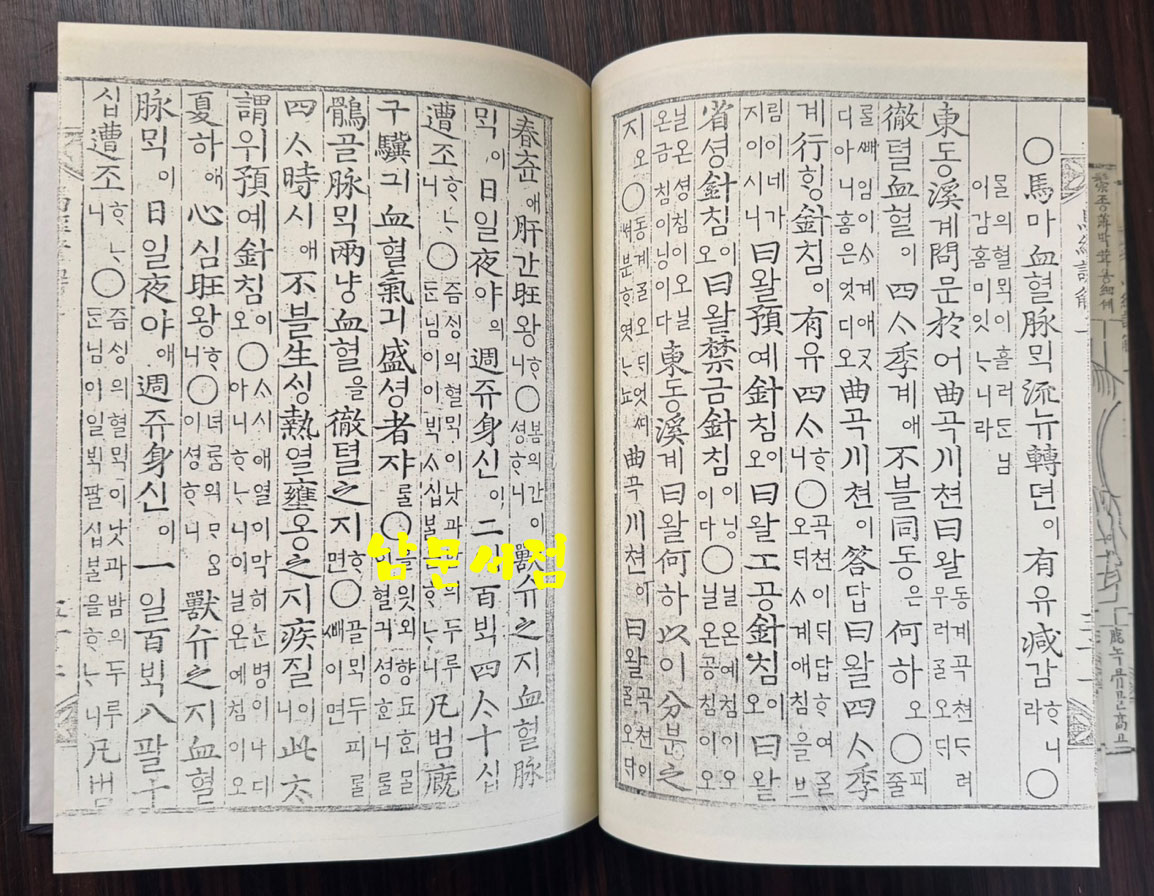 ○馬마血혈脉ᄆᆡᆨ流뉴轉뎐이有유減감ᄒᆞ니라○
ᄆᆞᆯ의혈ᄆᆡᆨ이흘러ᄃᆞᆫ님이감홈미잇ᄂᆞ니라
東동溪계問문於어曲곡川쳔曰왈동계곡쳔ᄃᆞ려무러ᄀᆞᆯ오ᄃᆡ
徹텰血혈이四ᄉᆞ季계애不블同동은何하오○피줄
ᄅᆞᆯᄲᅢ임이ᄉᆞ계애ᄀᆞᆺ디아니홈은엇디오曲곡川쳔이答답曰왈四ᄉᆞ季
계行ᄒᆡᆼ針침이有유四ᄉᆞᄒᆞ니○곡쳔이ᄃᆡ답ᄒᆞ여ᄀᆞᆯ오ᄃᆡᄉᆞ계애침을브
림이네가지이시니曰왈預예針침이오曰왈工공針침이오曰왈
省ᄉᆡᆼ針침이오曰왈禁금針침이닝이다○닐온예침이오닐온공침이오
닐온ᄉᆡᆼ침이오닐온금침이닝이다東동溪계曰왈何하以이分분之
지오○동계ᄀᆞᆯ오ᄃᆡ엇ᄡᅥ분ᄒᆞ엿ᄂᆞ뇨曲곡川쳔이曰왈곡쳔이ᄀᆞᆯ오ᄃᆡ
春츈애肝간旺왕ᄒᆞ니○봄의간이셩ᄒᆞ니獸슈之지血혈脉
ᄆᆡᆨ이日일夜야의週쥬身신이二이百ᄇᆡᆨ四ᄉᆞ十십
遭조ᄒᆞᄂᆞ니○즘ᄉᆡᆼ의혈ᄆᆡᆨ이낫과밤의두루ᄃᆞᆫ님이이ᄇᆡᆨᄉᆞ십불을ᄒᆞᄂᆞ니凡범廐
구驥긔血혈氣긔盛셩者쟈ᄅᆞᆯ○믈읫외향묘흔ᄆᆞᆯ이혈긔셩ᄒᆞᆫ니ᄅᆞᆯ
鶻골脉ᄆᆡᆨ兩냥血혈을徹텰之지ᄒᆞ면○골ᄆᆡᆨ두피ᄅᆞᆯᄲᅢ이면
四ᄉᆞ時시애不블生ᄉᆡᆼ熱열壅옹之지疾질이니此ᄎᆞ
謂위預예針침이오○ᄉᆞ시애열이막히ᄂᆞᆫ병이나디아니ᄒᆞᄂᆞ니이닐온예침이오
夏하애心심旺왕ᄒᆞ니○녀름의ᄆᆞᄋᆞᆷ이셩ᄒᆞ니獸슈之지血혈
脉ᄆᆡᆨ이日일夜야애週쥬身신이一일百ᄇᆡᆨ八팔十
십遭조ᄒᆞᄂᆞ니○즘ᄉᆡᆼ의혈ᄆᆡᆨ이낫과밤의두루ᄃᆞᆫ님이일ᄇᆡᆨ팔십불을ᄒᆞᄂᆞ니凡범
남문서점